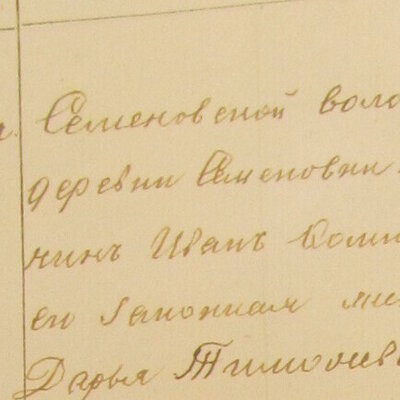 Семеновской воло
деревни Семеновки
нинъ Иванъ
его законная
Дарья Тимофеев